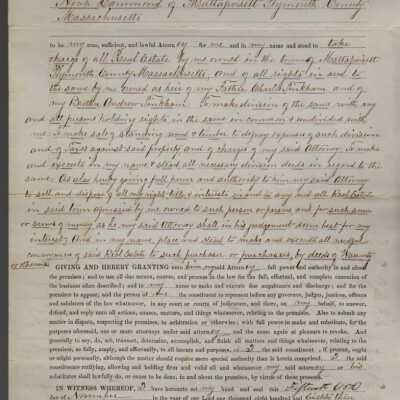 Noah Hammond of Mattapoisett Plymouth County,
Massachusetts
to be my true, sufficient, and lawful Attorney for me and in my name and stead to take
charge of all Real Estate by me owned in the town of Mattapoisett
Plymouth County Massachusetts, and of all rights in and to
the same by me owned as heir of my Father Tinkham and of
my Brother Andrew Tinkham To make division of the same with any
and all persons holding rights in the same in common & undivided with
me. To make sale of standing wood & timber to defray expenses of such division
and of Taxes against said property and of charges of my said Attorney To make
and execute in my name & stead all necessary division deeds in regard to the
same. As also hereby giving full power and authority to him my said Attorney
to sell and dispose of all my right title & interests in and to any and all Real Estate
in said town aforesaid by me owned to such person or persons and for such sum
or sums of money as he my said Attorney shall in his judgement deem best for my
interest; And in my name place and stead to make and execute all
conveyances of said Real Estate to such purchaser or purchasers, by deeds of Warranty
or otherwise
GIVING AND HEREBY GRANTING unto him my said Attorney full power and authority in and about
the premises; and to use all due means, course, and process in the law for the full, effectual, and complete execution of
the business afore described; and in my name to make and execute due acquittance and discharge; and for the
premises to appear, and the person of me the constituent to represent before any governor, judges, justices, officers
and ministers of the law whatsoever, in any court or courts of judicature, and there, on my behalf, to answer,
defend, and reply unto all actions, causes, matters, and things whatsoever, relating to the premises. Also to submit any
matter in dispute, respecting the premises, to arbitration or otherwise; with full power to make and substitute, for the
purposes aforesaid, one or more attorneys under said attorney and the same again at pleasure to revoke. And
generally to say, do, act, transact, determine, accomplish, and finish all matters and things whatsoever, relating to the
premises, as fully, amply, and effectually, to all intents and purposes, as I the said constituent if present, ought
or might personally, although the matter should require more special authority than is herein comprised I the said
constituent ratifying, allowing and holding firm and valid all and whatsoever my said attorney or his
substitutes shall lawfully do, or cause to be done, in and about the premises, by virtue of these presents.
IN WITNESS WHEREOF, I have hereunto set my hand and seal this
day of November in the year of our Lord one thousand eight hundred and